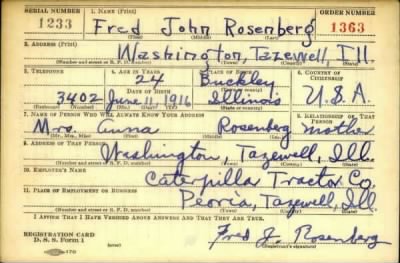 SERIAL NUMBER 1. NAME (Print) ORDER NUMBER
1233 Fred John Rosenberg 1363
(First) (Middle) (Last)
2. ADDRESS (Print)
Washington, Tazewell, Ill.
(Number and street or R. F. D. number) (Town) (County) (State)
3. TELEPHONE 4. AGE IN YEARS 5. PLACE OF BIRTH 6. COUNTRY OF CITIZENSHIP
24 Buckley
DATE OF BIRTH (Town or county)
3402 June 1916 Illinois U.S.A.
(Exchange) (Number) (Mo.) (Day) (Yr.) (State or country)
7. NAME OF PERSON WHO WILL ALWAYS KNOW YOUR ADDRESS 8. RELATIONSHIP OF THAT PERSON
Mrs Anna Rosenberg mother
(Mr., Mrs., Miss) (First) (Middle) (Last)
9. ADDRESS OF THAT PERSON
Washington, Tazewell, Ill.
(Number and street or R. F. D. number) (Town) (County) (State)
10. EMPLOYER'S NAME
Caterpilla Tractor Co.
11. PLACE OF EMPLOYMENT OR BUSINESS
Peoria, Tazewell, Ill
(Number and street or R. F. D. number) (Town) (County) (State)
I AFFIRM THAT I HAVE VERIFIED ABOVE ANSWERS AND THAT THEY ARE TRUE.
REGISTRATION CARD
D. S. S. Form 1 Fred J. Rosenberg
(Registrant's signature)